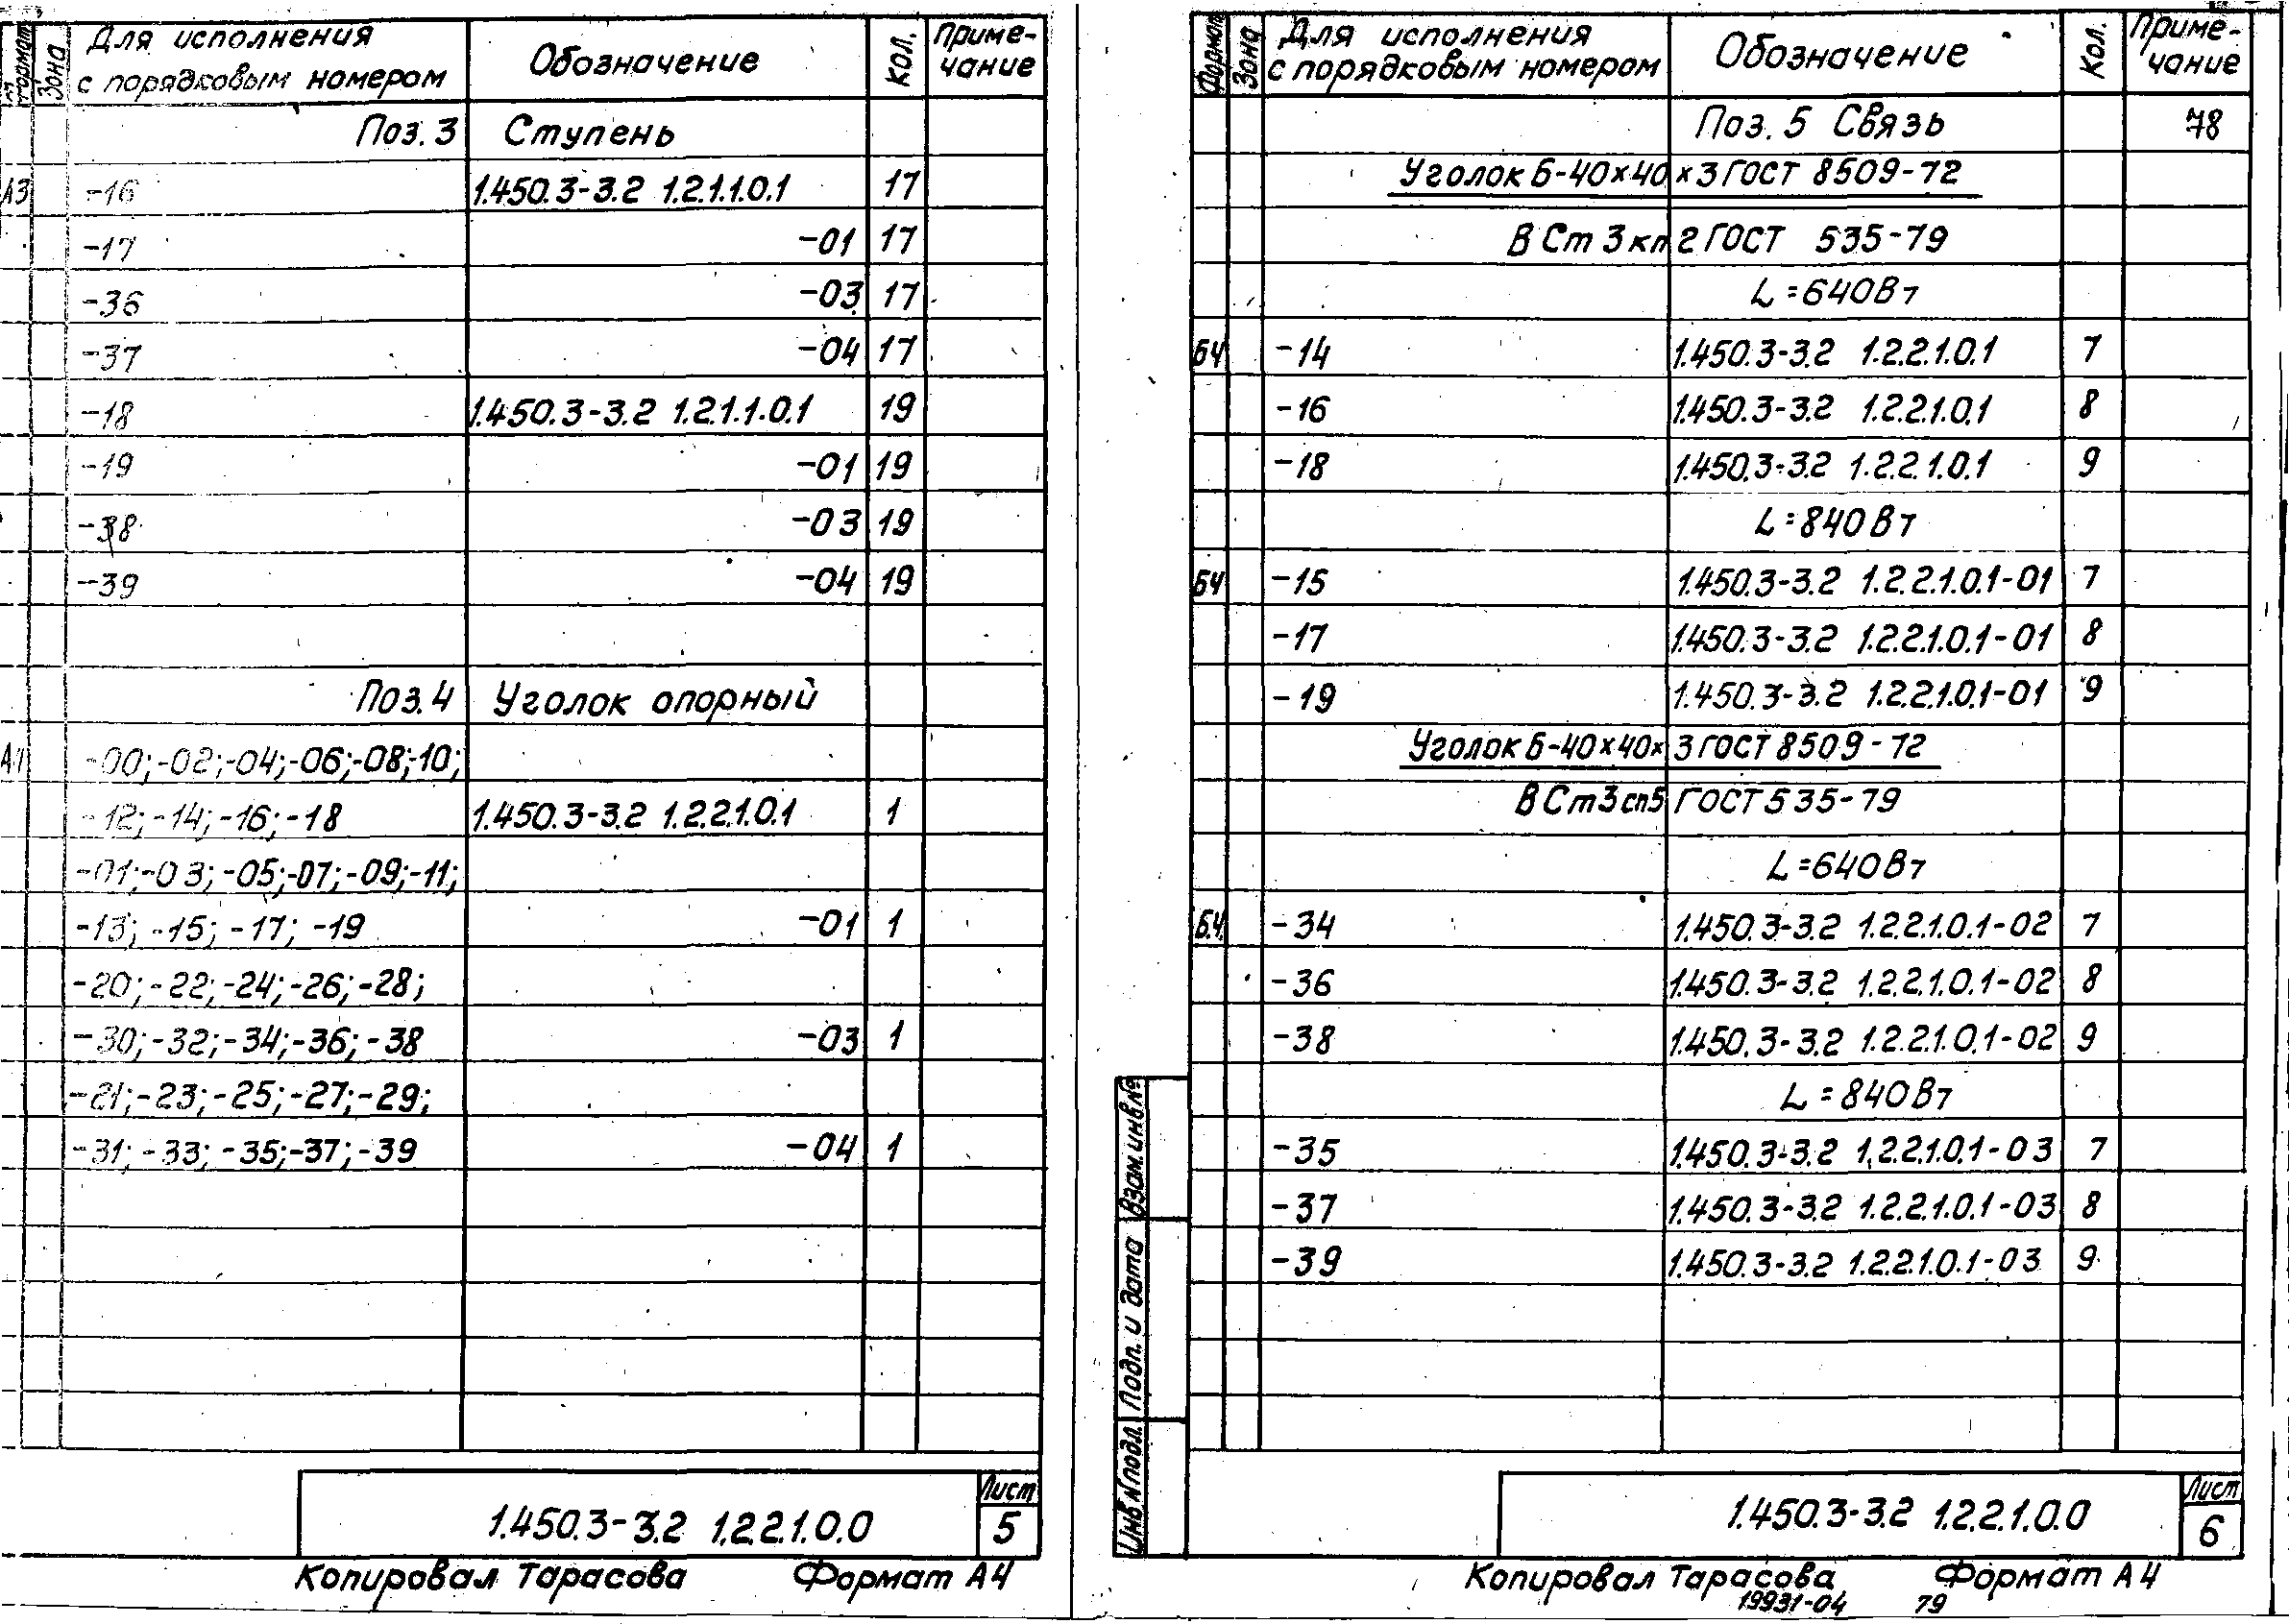 Формат Зона Для исполнения с порядковым номером Обозначение Кол. Примечание
Поз. 3 Ступень
А3 -16 1.450.3-3.2 1.2.1.1.0.1 17
-17 -01 17
-36 -03 17
-37 -04 17
-18 1.450.3-3.2 1.2.1.1.0.1 19
-19 -01 19
-38 -03 19
-39 -04 19
Поз. 4 Уголок опорный
А4 -00; -02; -04; -06; -08; -10;
-12; -14; -16; -18 1.450.3-3.2 1.2.2.1.0.1 1
-01; -03; -05; -07; -09; -11;
-13; -15; -17; -19 -01 1
-20; -22; -24; -26; -28;
-30; -32; -34; -36; -38 -03 1
-21; -23; -25; -27; -29;
-31; -33; -35; -37; -39 -04 1
1.450.3-3.2 1.2.2.1.0.0
Лист
5
Копировал Тарасова Формат А4
Формат Зона Для исполнения с порядковым номером Обозначение Кол. Примечание
Поз. 5 Связь 78
Уголок Б-40×40×3 ГОСТ 8509-72
В Ст 3 кп 2 ГОСТ 535-79
L=640Вт
БЧ -14 1.450.3-3.2 1.2.2.1.0.1 7
-16 1.450.3-3.2 1.2.2.1.0.1 8
-18 1.450.3-3.2 1.2.2.1.0.1 9
L=840Вт
БЧ -15 1.450.3-3.2 1.2.2.1.0.1-01 7
-17 1.450.3-3.2 1.2.2.1.0.1-01 8
-19 1.450.3-3.2 1.2.2.1.0.1-01 9
Уголок Б-40×40×3 ГОСТ 8509-72
В Ст3сп5 ГОСТ 535-79
L=640Вт
Б.Ч. -34 1.450.3-3.2 1.2.2.1.0.1-02 7
-36 1.450.3-3.2 1.2.2.1.0.1-02 8
-38 1.450.3-3.2 1.2.2.1.0.1-02 9
L=840Вт
-35 1.450.3-3.2 1.2.2.1.0.1-03 7
-37 1.450.3-3.2 1.2.2.1.0.1-03 8
-39 1.450.3-3.2 1.2.2.1.0.1-03 9
Взам. инв №
Подп. и дата
Инв. № подл.
1.450.3-3.2 1.2.2.1.0.0
Лист
6
Копировал Тарасова Формат А4
19931-04 79